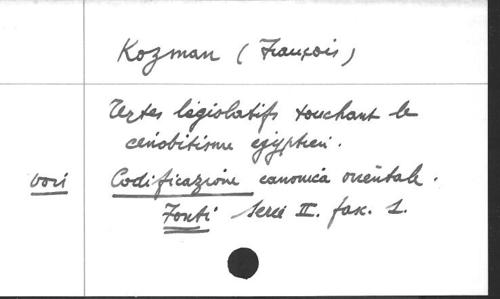 Kozman (François)
Textes législatifs touchant le
cénobitisme égyptien.
voir Codificazione canonica orientale.
Fonti Serie II. fasc. 1.